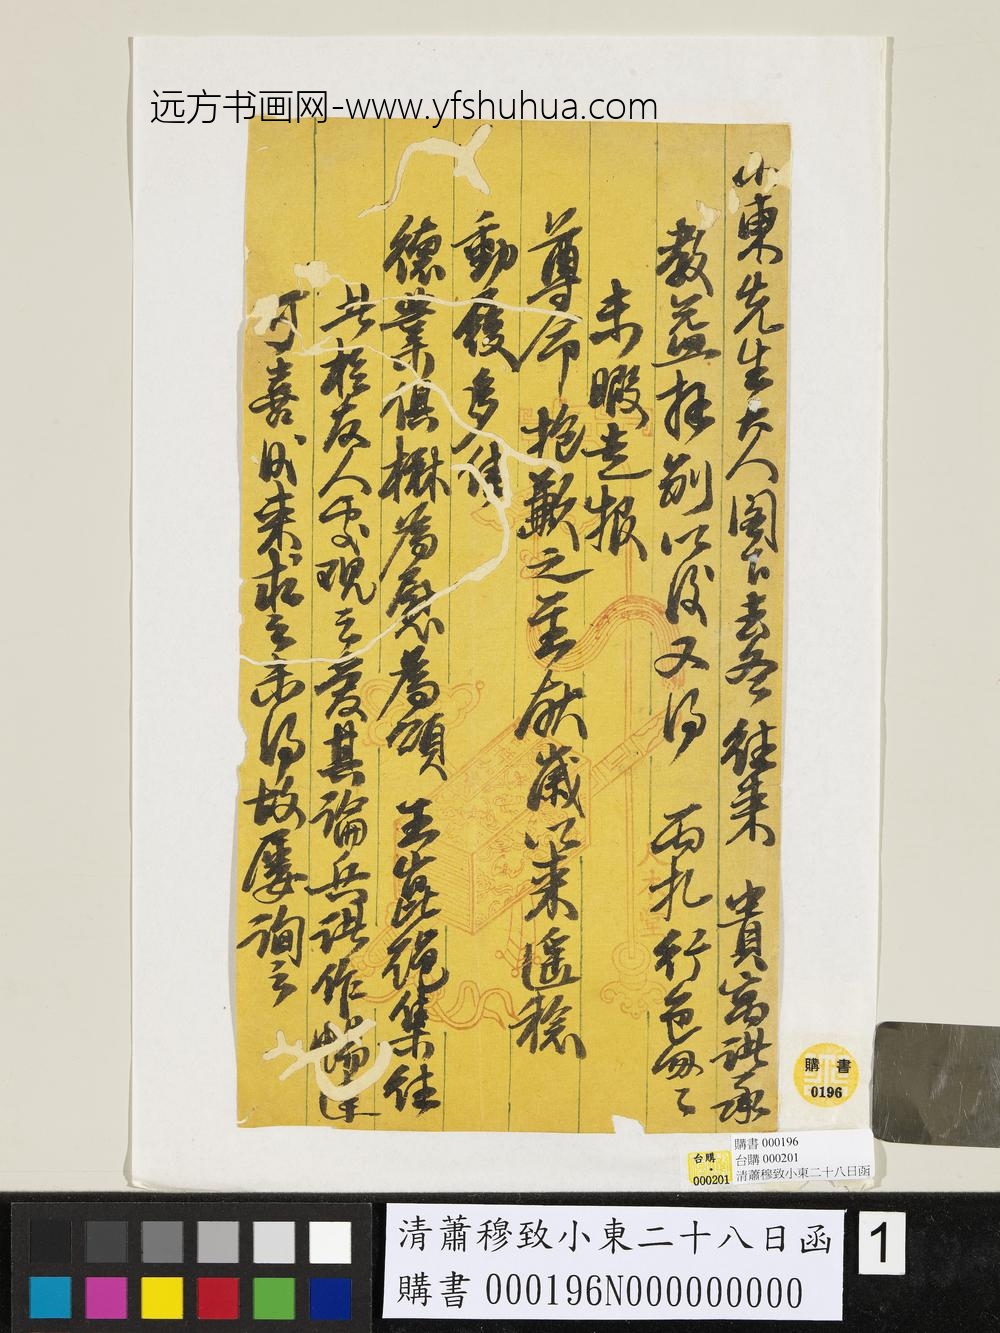 远方书画网-www.yfshuhua.com
小東先生大人閣下去冬往來貴寓諸承
教益拜別以後又得兩札行色匆匆
未暇走報
尊命抱歉之至獻歲以來遙稔
動履多佳
德業俱楙為慰為頌王崑繩集往
者於友人處觀之愛其論兵諸作暢達
可喜後來求之未得故屢詢之
人木堂
購書
0196
購書 000196
台購 000201
清蕭穆致小東二十八日函
台購
000201
清蕭穆致小東二十八日函
購書 000196N000000000
1